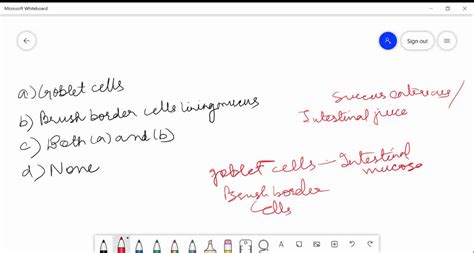 Microsoft Whiteboard
Sign out
a) Goblet cells
b) Brush border cells lining mucus
c) Both (a) and (b)
d) None
Succus entericus/
Intestinal juice
goblet cells – Intestinal
mucosa
Brush border
cells